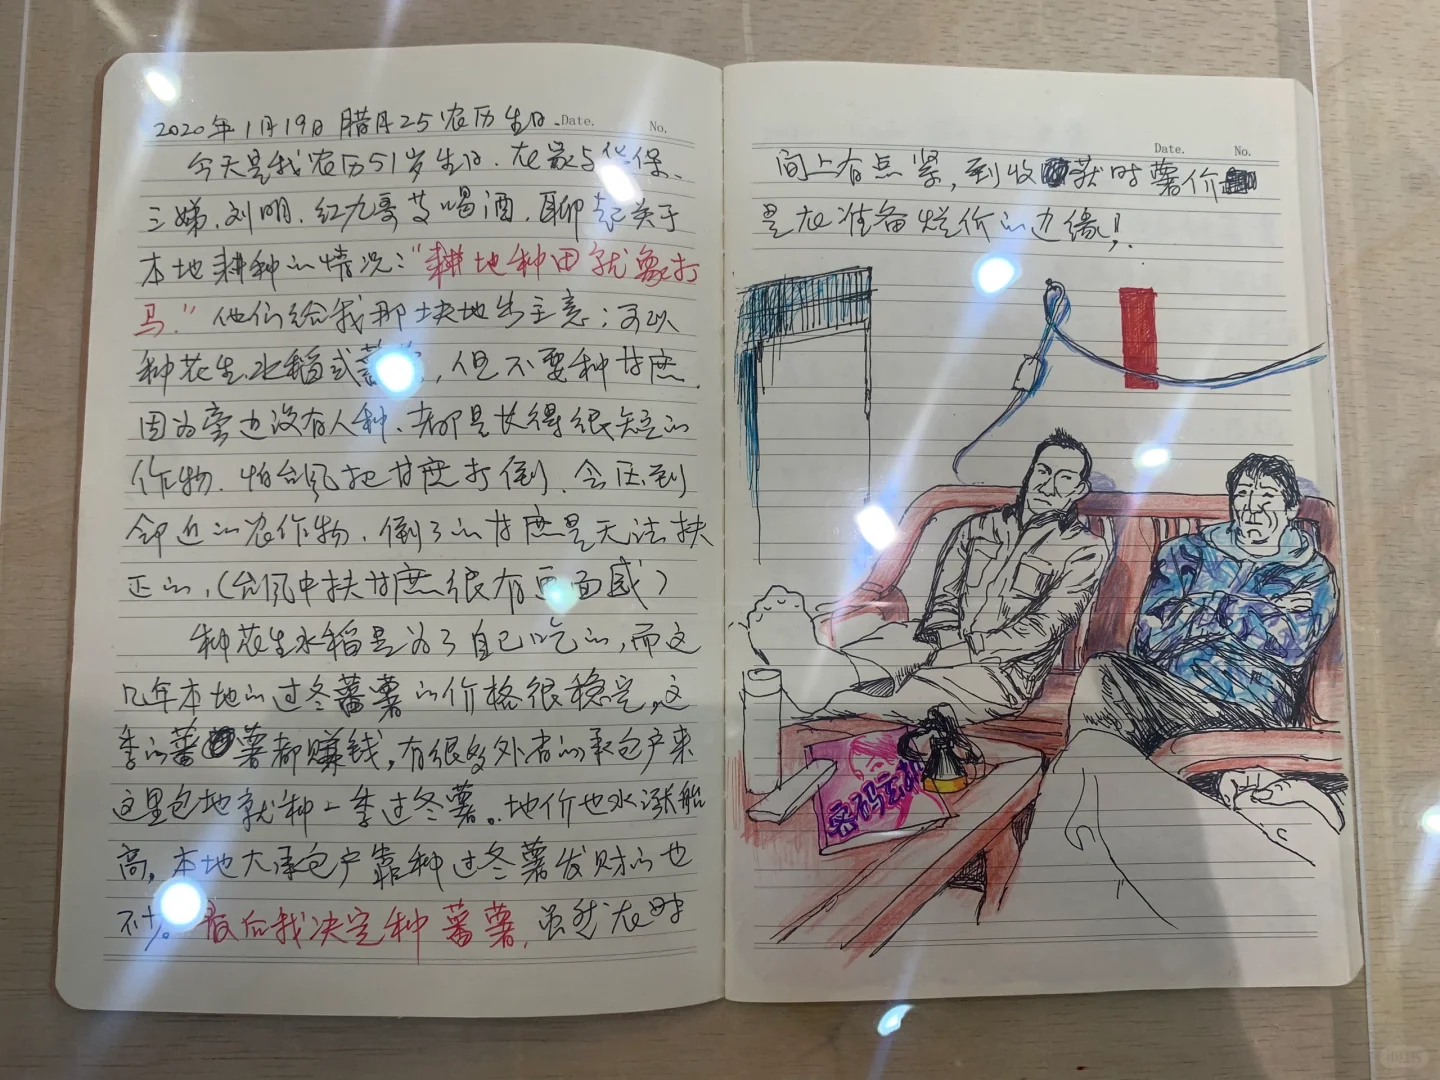 2020年1月19日 腊月25 农历生日. Date. No.
今天是我农历51岁生日. 在家与华保、
三娣.刘明.红九哥等喝酒.聊起关于
本地耕种的情况:"耕地种田就象打
马."他们给我那块地出主意;可以
种花生.水稻或蕃薯,但不要种甘庶.
因为旁边没有人种、都是长得很短的
作物.怕台风把甘庶打倒.会压到
邻近的农作物.倒了的甘庶是无法扶
正的.(台风中扶甘庶很有画面感)
种花生水稻是为了自己吃的,而这
几年本地的过冬蕃薯的价格很稳定,这
季的蕃薯都赚钱,有很多外省的承包户来
这里包地就种一季过冬薯。地价也水涨船
高,本地大承包户靠种过冬薯发财的也
不少。最后我决定种蕃薯,虽然在时
Date. No.
间上有点紧,到收获时薯价
是在准备烂价的边缘!
密码
小红书